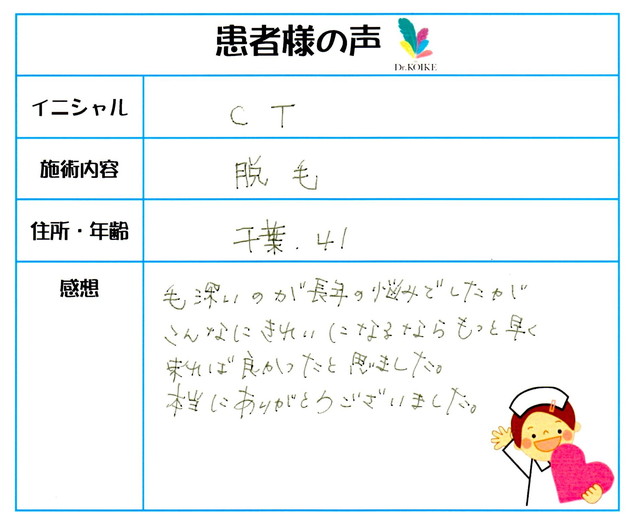 患者様の声
Dr.KOIKE
イニシャル
C T
施術内容
脱毛
住所・年齢
千葉.41
感想
毛深いのが長年の悩みでしたがが
こんなにきれいになるならもっと早く
来れば良かったと思いました。
本当にありがとうございました。